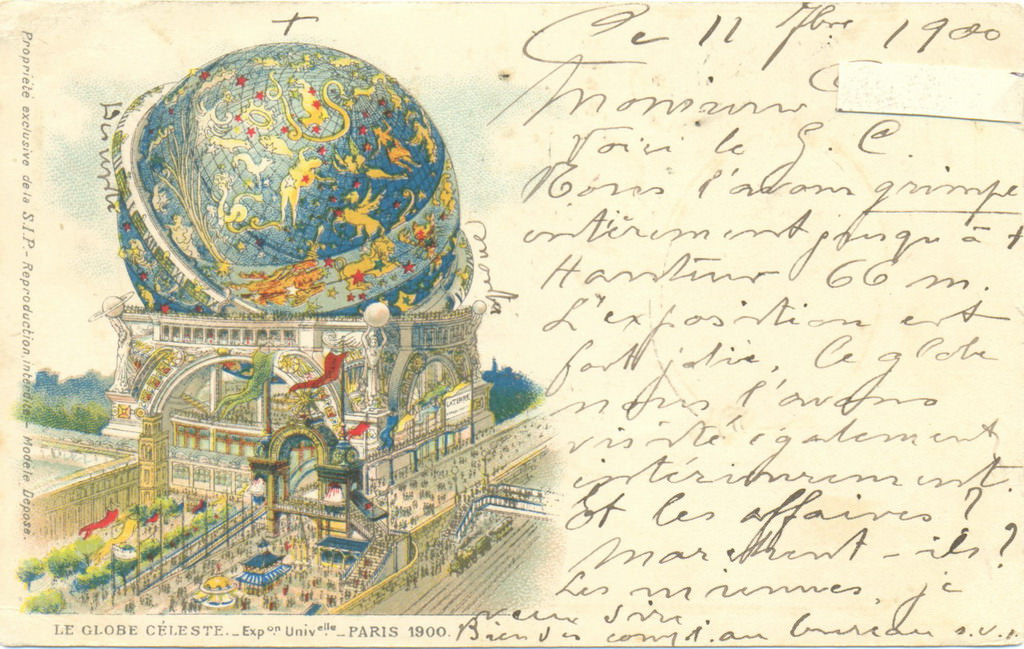 Propriété exclusive de la S.I.P. - Reproduction Interdite - Modèle Déposé.
LE GLOBE CÉLESTE. - Expon Univelle - PARIS 1900.
LA TERRE
+
Ce 11 7bre 1900
Monsieur
Voici le G. C.
Nous l'avons grimpé
entièrement jusqu'à +
Hauteur 66 m.
L'exposition est
fort jolie, Ce globe
nous l'avons
visité également
intérieurement.
Et les affaires ?
Marchent-ils ?
Les miennes, je
veux dire
Bien des compl. au bureau s.v.p.